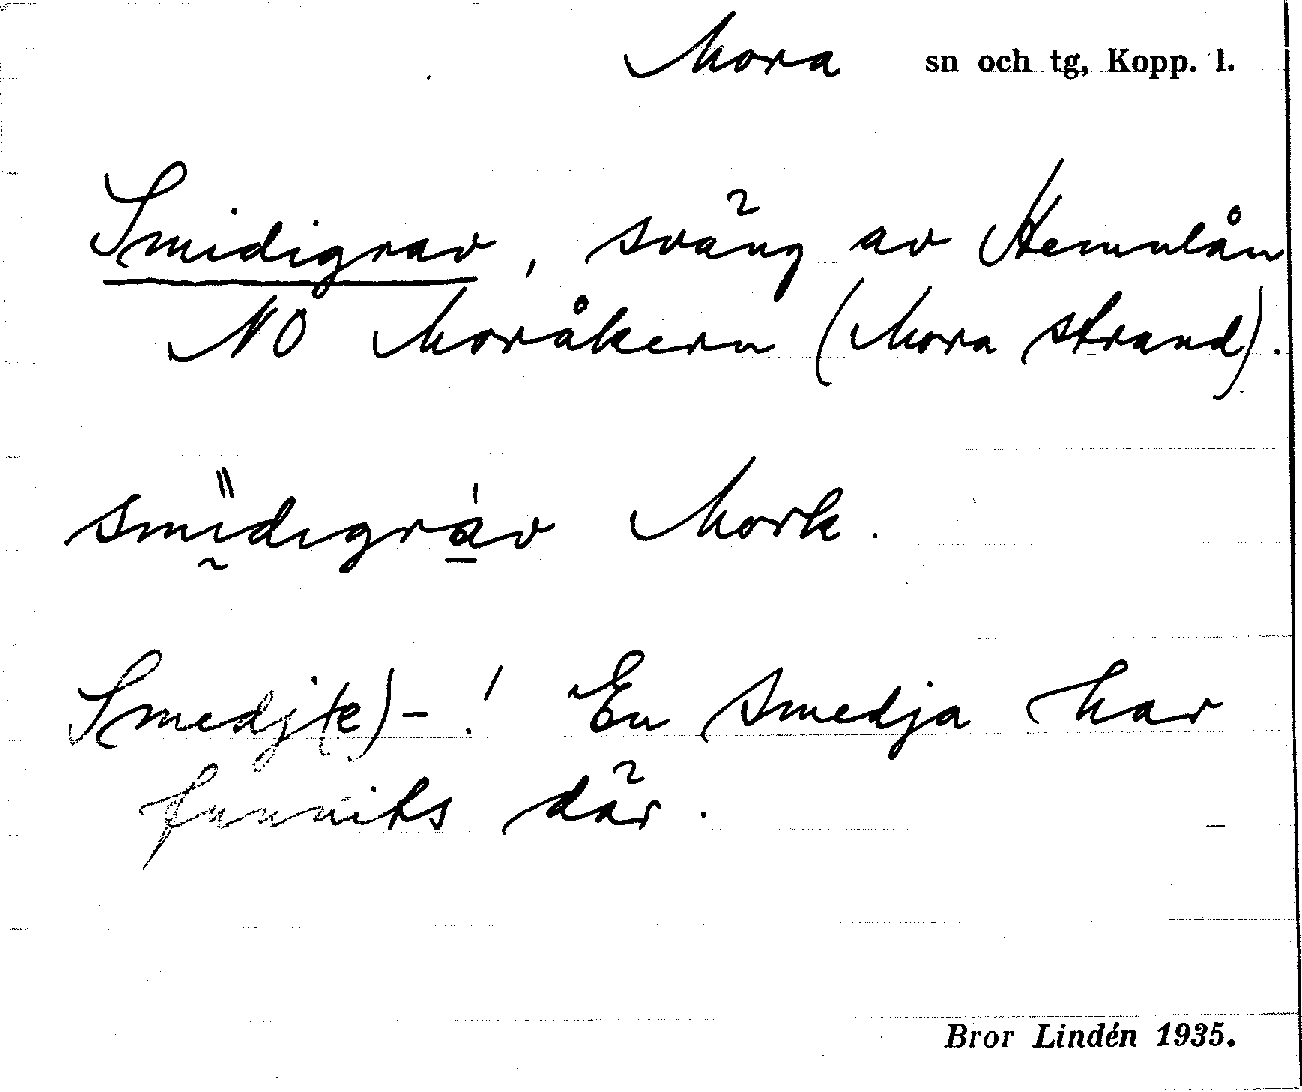 Mora sn och tg, Kopp. l.
Smidigrav, sväng av Hemulån
NO Moråkern (Mora strand).
smidigrav Mork.
Smedj(e)-! En smedja har
funnits där.
Bror Lindén 1935.